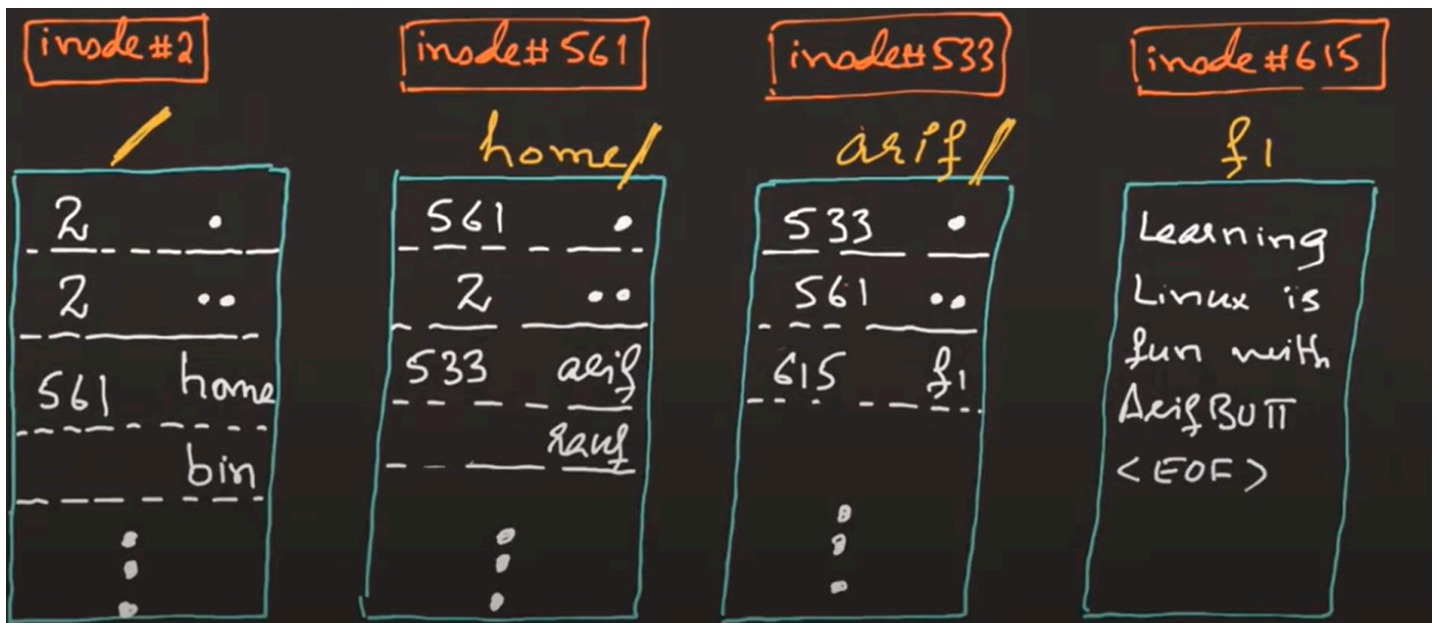 inode #2
/
2 .
2 ..
561 home
bin
inode# 561
home/
561 .
2 ..
533 arif
rauf
inode# 533
arif/
533 .
561 ..
615 f1
inode #615
f1
Learning
Linux is
fun with
Arif BUTT
<EOF>